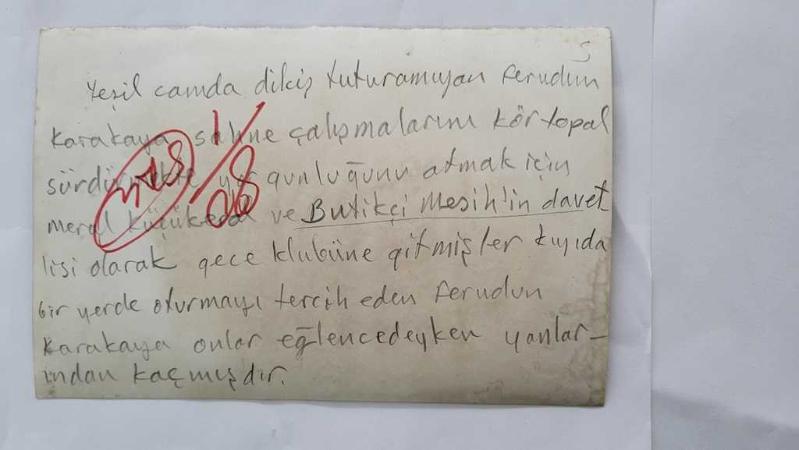 Yeşil camda dikiş tuturamıyan Ferudun
Karakaya sahne çalışmalarını kör topal
sürdürmekte yorgunluğunu atmak için
meral ve Butikçi Mesih'in davet
lisi olarak gece klubüne gitmişler kıyıda
bir yerde oturmayı tercih eden Ferudun
Karakaya onlar eğlencedeyken yanlar-
ından kaçmışdır.